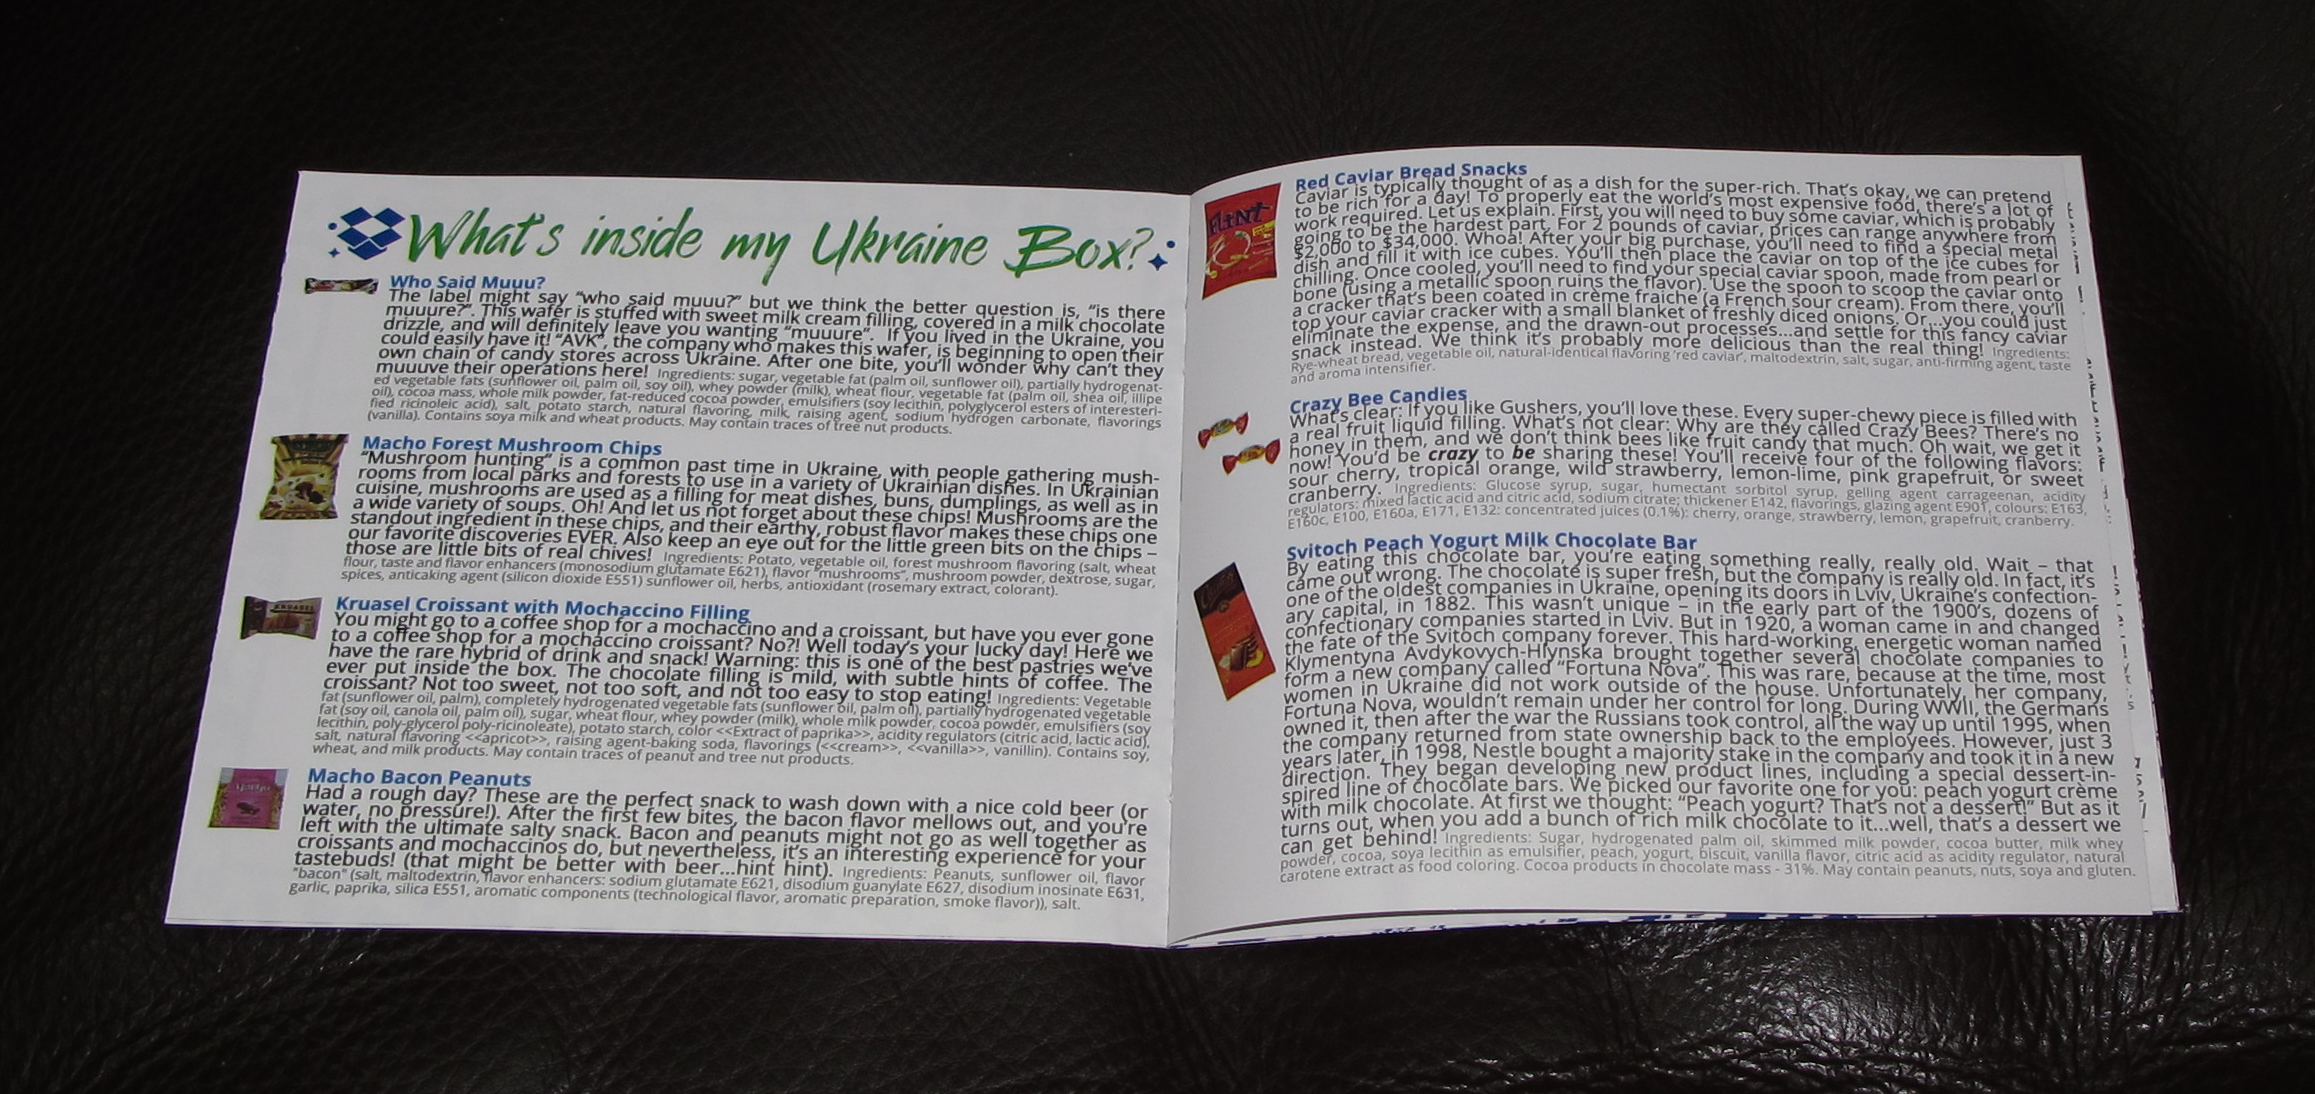 What's inside my Ukraine Box?
Who Said Muuu?
The label might say “who said muuu?” but we think the better question is, “is there
muuure?”. This wafer is stuffed with sweet milk cream filling, covered in a milk chocolate
drizzle, and will definitely leave you wanting “muuure”. If you lived in the Ukraine, you
could easily have it! “AVK”, the company who makes this wafer, is beginning to open their
own chain of candy stores across Ukraine. After one bite, you’ll wonder why can’t they
muuuve their operations here! Ingredients: sugar, vegetable fat (palm oil, sunflower oil), partially hydrogenat-
ed vegetable fats (sunflower oil, palm oil, soy oil), whey powder (milk), wheat flour, vegetable fat (palm oil, shea oil, illipe
oil), cocoa mass, whole milk powder, fat-reduced cocoa powder, emulsifiers (soy lecithin, polyglycerol esters of interesteri-
fied ricinoleic acid), salt, potato starch, natural flavoring, milk, raising agent, sodium hydrogen carbonate, flavorings
(vanilla). Contains soya milk and wheat products. May contain traces of tree nut products.
Macho Forest Mushroom Chips
“Mushroom hunting” is a common past time in Ukraine, with people gathering mush-
rooms from local parks and forests to use in a variety of Ukrainian dishes. In Ukrainian
cuisine, mushrooms are used as a filling for meat dishes, buns, dumplings, as well as in
a wide variety of soups. Oh! And let us not forget about these chips! Mushrooms are the
standout ingredient in these chips, and their earthy, robust flavor makes these chips one
our favorite discoveries EVER. Also keep an eye out for the little green bits on the chips –
those are little bits of real chives! Ingredients: Potato, vegetable oil, forest mushroom flavoring (salt, wheat
flour, taste and flavor enhancers (monosodium glutamate E621), flavor "mushrooms", mushroom powder, dextrose, sugar,
spices, anticaking agent (silicon dioxide E551) sunflower oil, herbs, antioxidant (rosemary extract, colorant).
Kruasel Croissant with Mochaccino Filling
You might go to a coffee shop for a mochaccino and a croissant, but have you ever gone
to a coffee shop for a mochaccino croissant? No?! Well today’s your lucky day! Here we
have the rare hybrid of drink and snack! Warning: this is one of the best pastries we’ve
ever put inside the box. The chocolate filling is mild, with subtle hints of coffee. The
croissant? Not too sweet, not too soft, and not too easy to stop eating! Ingredients: Vegetable
fat (sunflower oil, palm), completely hydrogenated vegetable fats (sunflower oil, palm oil), partially hydrogenated vegetable
fat (soy oil, canola oil, palm oil), sugar, wheat flour, whey powder (milk), whole milk powder, cocoa powder, emulsifiers (soy
lecithin, poly-glycerol poly-ricinoleate), potato starch, color <<Extract of paprika>>, acidity regulators (citric acid, lactic acid),
salt, natural flavoring <<apricot>>, raising agent-baking soda, flavorings (<<cream>>, <<vanilla>>, vanillin). Contains soy,
wheat, and milk products. May contain traces of peanut and tree nut products.
Macho Bacon Peanuts
Had a rough day? These are the perfect snack to wash down with a nice cold beer (or
water, no pressure!). After the first few bites, the bacon flavor mellows out, and you’re
left with the ultimate salty snack. Bacon and peanuts might not go as well together as
croissants and mochaccinos do, but nevertheless, it’s an interesting experience for your
tastebuds! (that might be better with beer...hint hint). Ingredients: Peanuts, sunflower oil, flavor
"bacon" (salt, maltodextrin, flavor enhancers: sodium glutamate E621, disodium guanylate E627, disodium inosinate E631,
garlic, paprika, silica E551, aromatic components (technological flavor, aromatic preparation, smoke flavor)), salt.
Red Caviar Bread Snacks
Caviar is typically thought of as a dish for the super-rich. That’s okay, we can pretend
to be rich for a day! To properly eat the world’s most expensive food, there’s a lot of
work required. Let us explain. First, you will need to buy some caviar, which is probably
going to be the hardest part. For 2 pounds of caviar, prices can range anywhere from
$2,000 to $34,000. Whoa! After your big purchase, you’ll need to find a special metal
dish and fill it with ice cubes. You’ll then place the caviar on top of the ice cubes for
chilling. Once cooled, you’ll need to find your special caviar spoon, made from pearl or
bone (using a metallic spoon ruins the flavor). Use the spoon to scoop the caviar onto
a cracker that’s been coated in crème fraiche (a French sour cream). From there, you’ll
top your caviar cracker with a small blanket of freshly diced onions. Or...you could just
eliminate the expense, and the drawn-out processes...and settle for this fancy caviar
snack instead. We think it’s probably more delicious than the real thing! Ingredients:
Rye-wheat bread, vegetable oil, natural-identical flavoring 'red caviar', maltodextrin, salt, sugar, anti-firming agent, taste
and aroma intensifier.
FLINT
Crazy Bee Candies
What’s clear: If you like Gushers, you’ll love these. Every super-chewy piece is filled with
a real fruit liquid filling. What’s not clear: Why are they called Crazy Bees? There’s no
honey in them, and we don’t think bees like fruit candy that much. Oh wait, we get it
now! You’d be crazy to be sharing these! You’ll receive four of the following flavors:
sour cherry, tropical orange, wild strawberry, lemon-lime, pink grapefruit, or sweet
cranberry. Ingredients: Glucose syrup, sugar, humectant sorbitol syrup, gelling agent carrageenan, acidity
regulators: mixed lactic acid and citric acid, sodium citrate; thickener E142, flavorings, glazing agent E901, colours: E163,
E160c, E100, E160a, E171, E132: concentrated juices (0.1%): cherry, orange, strawberry, lemon, grapefruit, cranberry.
Svitoch Peach Yogurt Milk Chocolate Bar
By eating this chocolate bar, you’re eating something really, really old. Wait – that
came out wrong. The chocolate is super fresh, but the company is really old. In fact, it’s
one of the oldest companies in Ukraine, opening its doors in Lviv, Ukraine’s confection-
ary capital, in 1882. This wasn’t unique – in the early part of the 1900’s, dozens of
confectionary companies started in Lviv. But in 1920, a woman came in and changed
the fate of the Svitoch company forever. This hard-working, energetic woman named
Klymentyna Avdykovych-Hlynska brought together several chocolate companies to
form a new company called “Fortuna Nova”. This was rare, because at the time, most
women in Ukraine did not work outside of the house. Unfortunately, her company,
Fortuna Nova, wouldn’t remain under her control for long. During WWII, the Germans
owned it, then after the war the Russians took control, all the way up until 1995, when
the company returned from state ownership back to the employees. However, just 3
years later, in 1998, Nestle bought a majority stake in the company and took it in a new
direction. They began developing new product lines, including a special dessert-in-
spired line of chocolate bars. We picked our favorite one for you: peach yogurt crème
with milk chocolate. At first we thought: “Peach yogurt? That’s not a dessert!” But as it
turns out, when you add a bunch of rich milk chocolate to it...well, that’s a dessert we
can get behind! Ingredients: Sugar, hydrogenated palm oil, skimmed milk powder, cocoa butter, milk whey
powder, cocoa, soya lecithin as emulsifier, peach, yogurt, biscuit, vanilla flavor, citric acid as acidity regulator, natural
carotene extract as food coloring. Cocoa products in chocolate mass - 31%. May contain peanuts, nuts, soya and gluten.